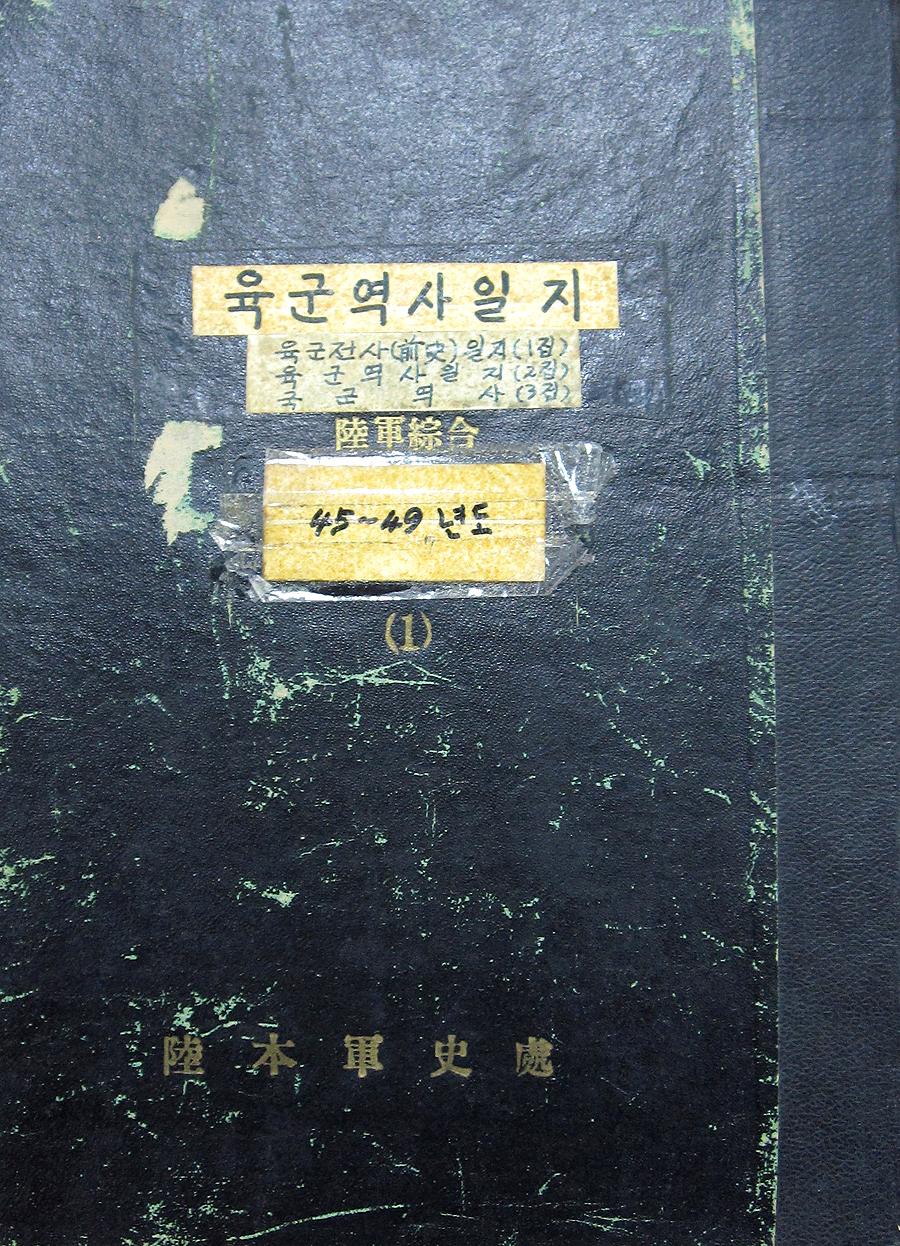 육군역사일지
육군전사(前史)일지(1점)
육군역사일지(2점)
국군역사(3점)
陸軍綜合
45~49 년도
(1)
陸本軍史處